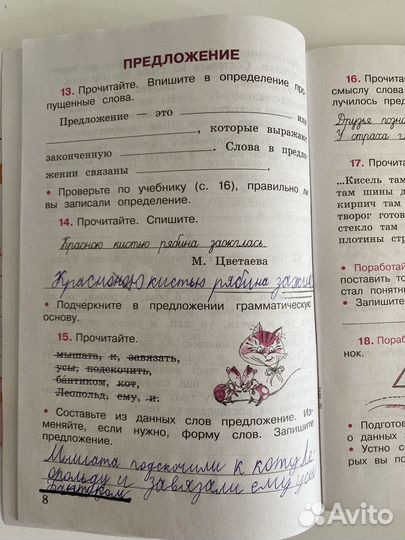 ПРЕДЛОЖЕНИЕ
13. Прочитайте. Впишите в определение про-
пущенные слова.
Предложение — это или
, которые выражают
законченную . Слова в предло-
жении связаны .
• Проверьте по учебнику (с. 16), правильно ли
вы записали определение.
14. Прочитайте. Спишите.
Красною кистью рябина зажглась.
М. Цветаева
Красною кистью рябина зажгл
• Подчеркните в предложении грамматическую
основу.
15. Прочитайте.
мышата, к, завязать,
усы, подскочить,
бантиком, кот,
Леопольд, ему, и.
• Составьте из данных слов предложение. Из-
меняйте, если нужно, форму слов. Запишите
предложение.
Мышата подскочили к коту Ле
опольду и завязали ему усы
бантиком
8
16. Прочита
смыслу слова
лучилось предлож
Друзья позна
У страха г
17. Прочита
...Кисель там
там шины д
кирпич там
творог готов
стекло там
плотины стр
• Поработай
поставить то
стал понятн
• Запишите
18. Поработай
нок.
• Подгото
о данных з
• Устно со
рых вы по
Avito